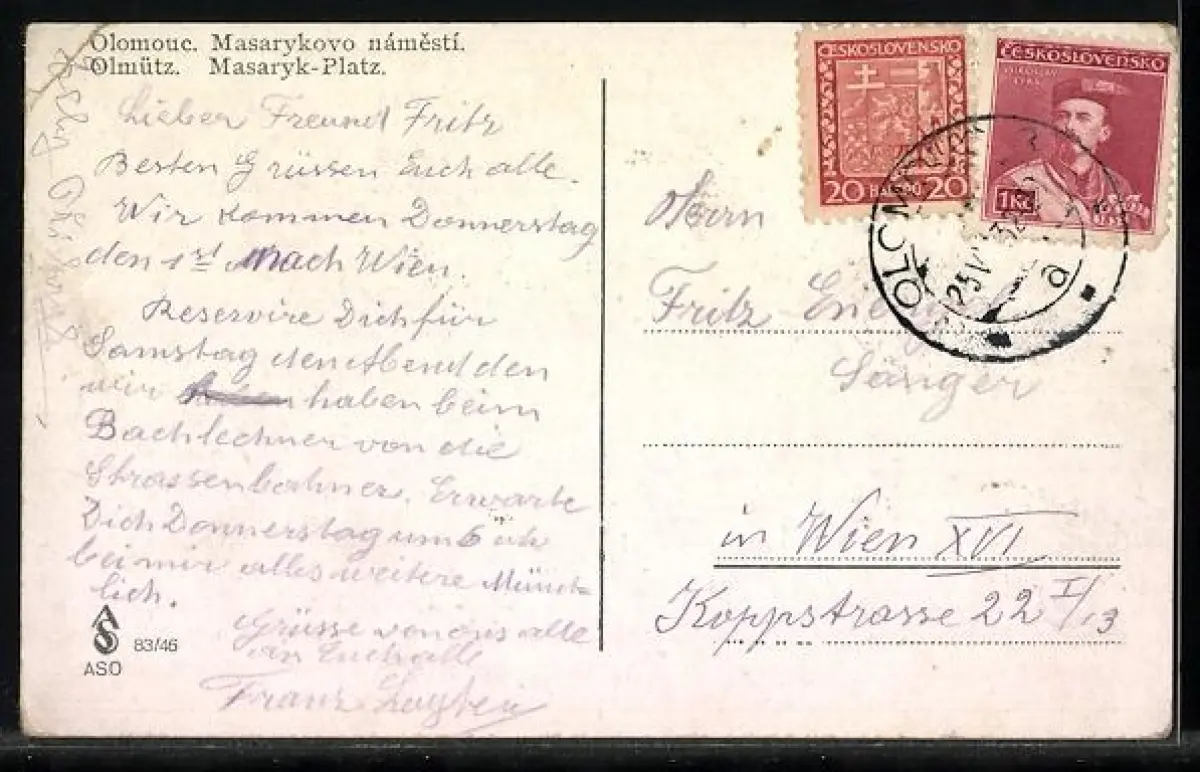 Olomouc. Masarykovo náměstí.
Olmütz. Masaryk-Platz.
Lieber Freund Fritz
Besten Grüssen Euch alle.
Wir kommen Donnerstag
den 1st Nach Wien.
Reservire Dich für
Samstag den Abend den
wir haben beim
Bachlechner von die
Strassenbahner. Erwarte
Dich Donnerstag um 6 uh
bei mir alles weitere Münd-
lich.
Grüsse von uns alle
an Euch alle
Franz
83/46
ASO
ČESKOSLOVENSKO
20 HALÉŘŮ 20
ČESKOSLOVENSKO
MIROSLAV
TYRŠ
1Kč
1932
OLOMOUC
25 V
a
Herrn
Fritz
Sänger
in Wien XVI
Koppstrasse 22 I/13